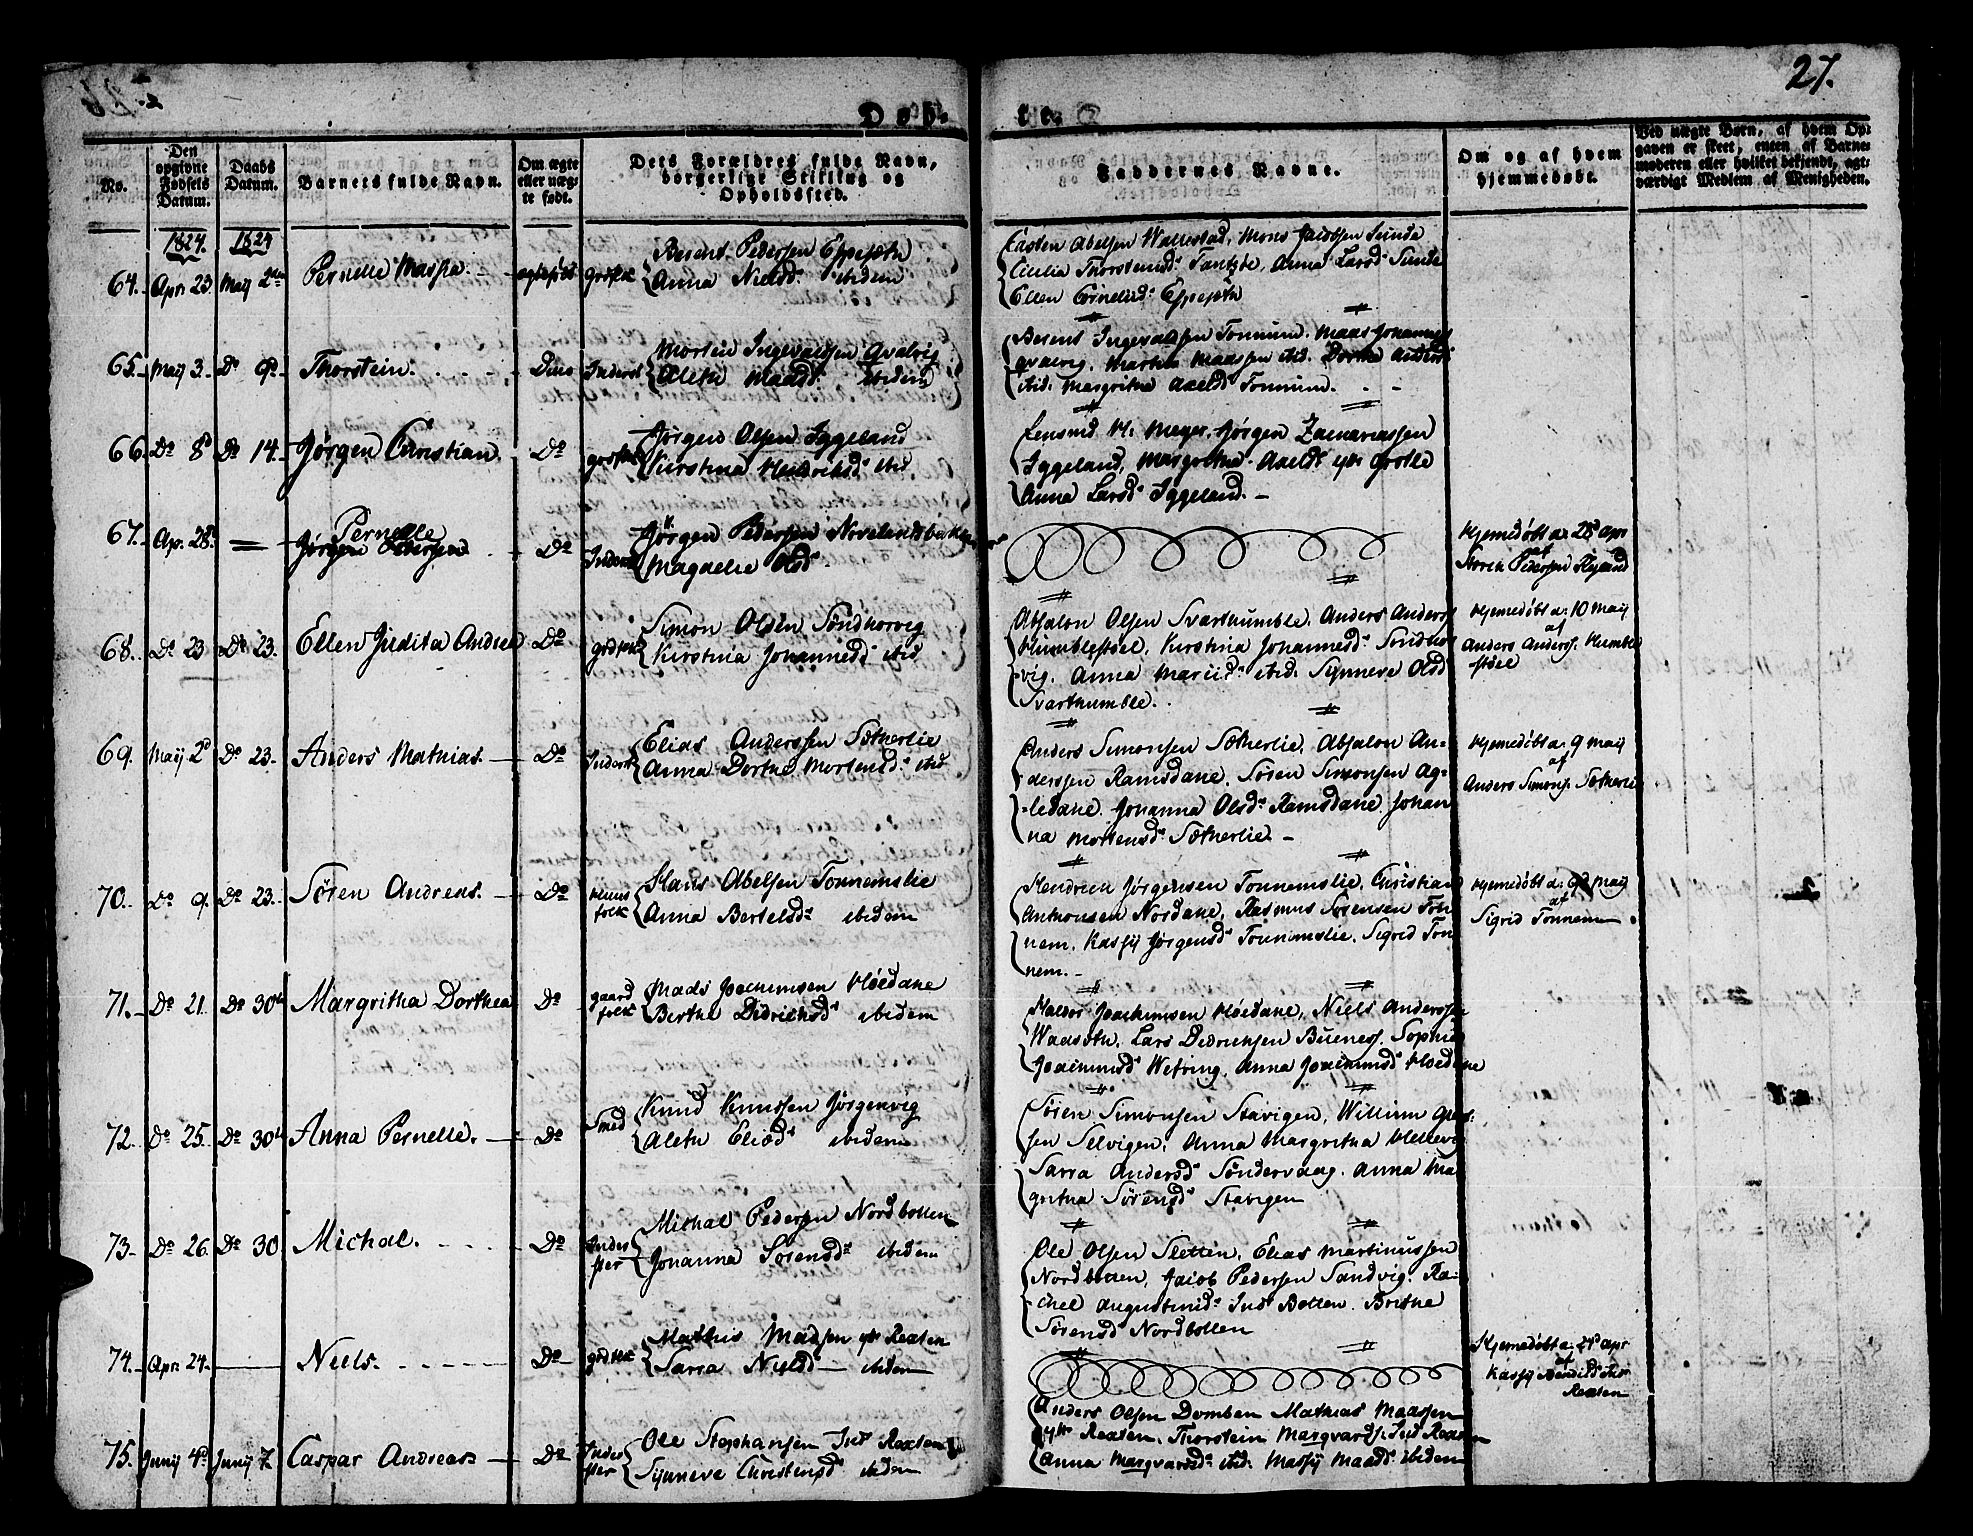 27.
Døb- te.
No.
Den opgivne Fødsels Datum.
Daabs Datum.
Barnets fulde Navn.
Om ægte eller uægte født.
Dets Forældres fulde Navn, borgerlige Stilling og Opholdssted.
Faddernes Navne.
Om og af hvem hjemmedøbt.
Ved uægte Børn, af hvem Opgaven er skeet, enten af Barnemoderen eller hvilket bekjendt, agtværdigt Medlem af Menigheden.
1824. 1824
64. Apr. 23. Maij 2den Pernelle Massia. ægtefødt
Berent Pedersen
Anna Nielsd. ibidem
Casten Abelsen Wallestad, Mons Jacobsen Sunde
Anna Larsd. Sunde
Ellen Cornelisd.
65. Maij 3. Do 9de Thorstein. Dito Inderst
Morten Ingevaldsen Qvalvig
Alethe Maasd. ibidem
Berent Ingevaldsen Tonnum. Maas Johannes
Qvalvig. Marthe Maassen ibid. Dorthe Anders
ibid. Margrithe Axelsd. Tonnum.
66. Do 8d Do 14. Jørgen Christian. Do
Jørgen Olsen Iggeland
Kirstina Hendriksd. ibid
Lensmd H. Meyer, Jørgen Zachariassen
Iggeland, Margrithe Axelsd.
Anna Larsd. Iggeland.
67. Apr. 28. = Pernelle
Jørgen Pedersen Do Inderst
Jørgen Pedersen Novelandsbakken
Magdelie Olsd.
Hjemedøbt a: 28d Apr
af
Pedersen
68. Do 23 Do 23. Ellen Judita Andrea Do
Simon Olsen Sondhorvig
Kirstina Johannesd. ibid
Absalon Olsen Svarthumble. Anders Anders
Humblestoel, Kirstina Johannesd. Sondhor
vig. Anna Mariid. ibid. Synneve Olsd
Svarthumble.
Hjemedøbt a: 10 Maij
af
Anders Anders. Humble
stoel
69. Maij 2d Do 23. Anders Mathias. Do Inderst
Elias Anderssen Sætherlie
Anna Dorthe Mortensd. ibid
Anders Simonsen Sætherlie, Absalon An=
derssen Ramsdane. Søren Simonsen Ag=
=ledane. Johanna Olsd. Ramsdane Johan
na Mortensd. Sætherlie.
Hjemedøbt a: 9 Maij
af
Anders Simons. Sætherlie
70. Do 9. Do 23. Søren Andreas. Do Huus folk
Hans Abelsen Tonnemslie
Anna Bertelsd. ibidem
Hendrich Jørgensen Tonnemslie, Christian
Anthonsen Nordane, Rasmus Sørensen Ton
nem. Kassij Jørgensd. Tonnemslie. Sigrid Ton
nem.
Hjemedøbt a: 9d Maij
af
Sigrid Tonnem
71. Do 21. Do 30te Margritha Dorthea Do gaard folk
Mads Joachimsen Høedane
Berthe Didrichsd. ibidem
Halvor Joachimsen Høedane, Niels Anderssen
Lars Didrichsen Buenes. Sophie
Joachimsd. Wefring, Anna Joachimsd. Hoedane
72. Do 25. Do 30te Anna Pernelle. Do Smed
Knud Knudsen Jørgenvig
Alethe Eliæd. ibidem
Søren Simonsen Stavigen, Willum
sen Selvigen, Anna Margritha Hellevig
Sarra Andersd. Søndervaag. Anna Ma
gritha Sørensd. Stavigen
73. Do 26. Do 30 Michal. Do Inder ster
Michal Pedersen Nordbotten
Johanna Sørensd. ibidem
Ole Olsen Sletten, Elias Martinussen
Nordbotten, Jacob Pedersen Sandvig. Ra-
chel Augustinid. Inds Botten. Brithe
Sørensd Nordbotten
74. Apr 24. Niels. Do
Mathis Madsen ytr Rexten
Sarra Nielsd ibidem
Hjemedøbt a: Apr
af
Kassij
Rexten
75. Junij 4d Junij 7. Caspar Andreas Do Inder ster
Ole Stephansen Inds Rexten
Synneve Christensd. ibidem
Anders Olsen Domben Mathias Maassen
ytr Rexten. Thorstein Marqvards. Inds Rexten
Anna Marqvardsd. ibid. Massij Maasd. ibidem